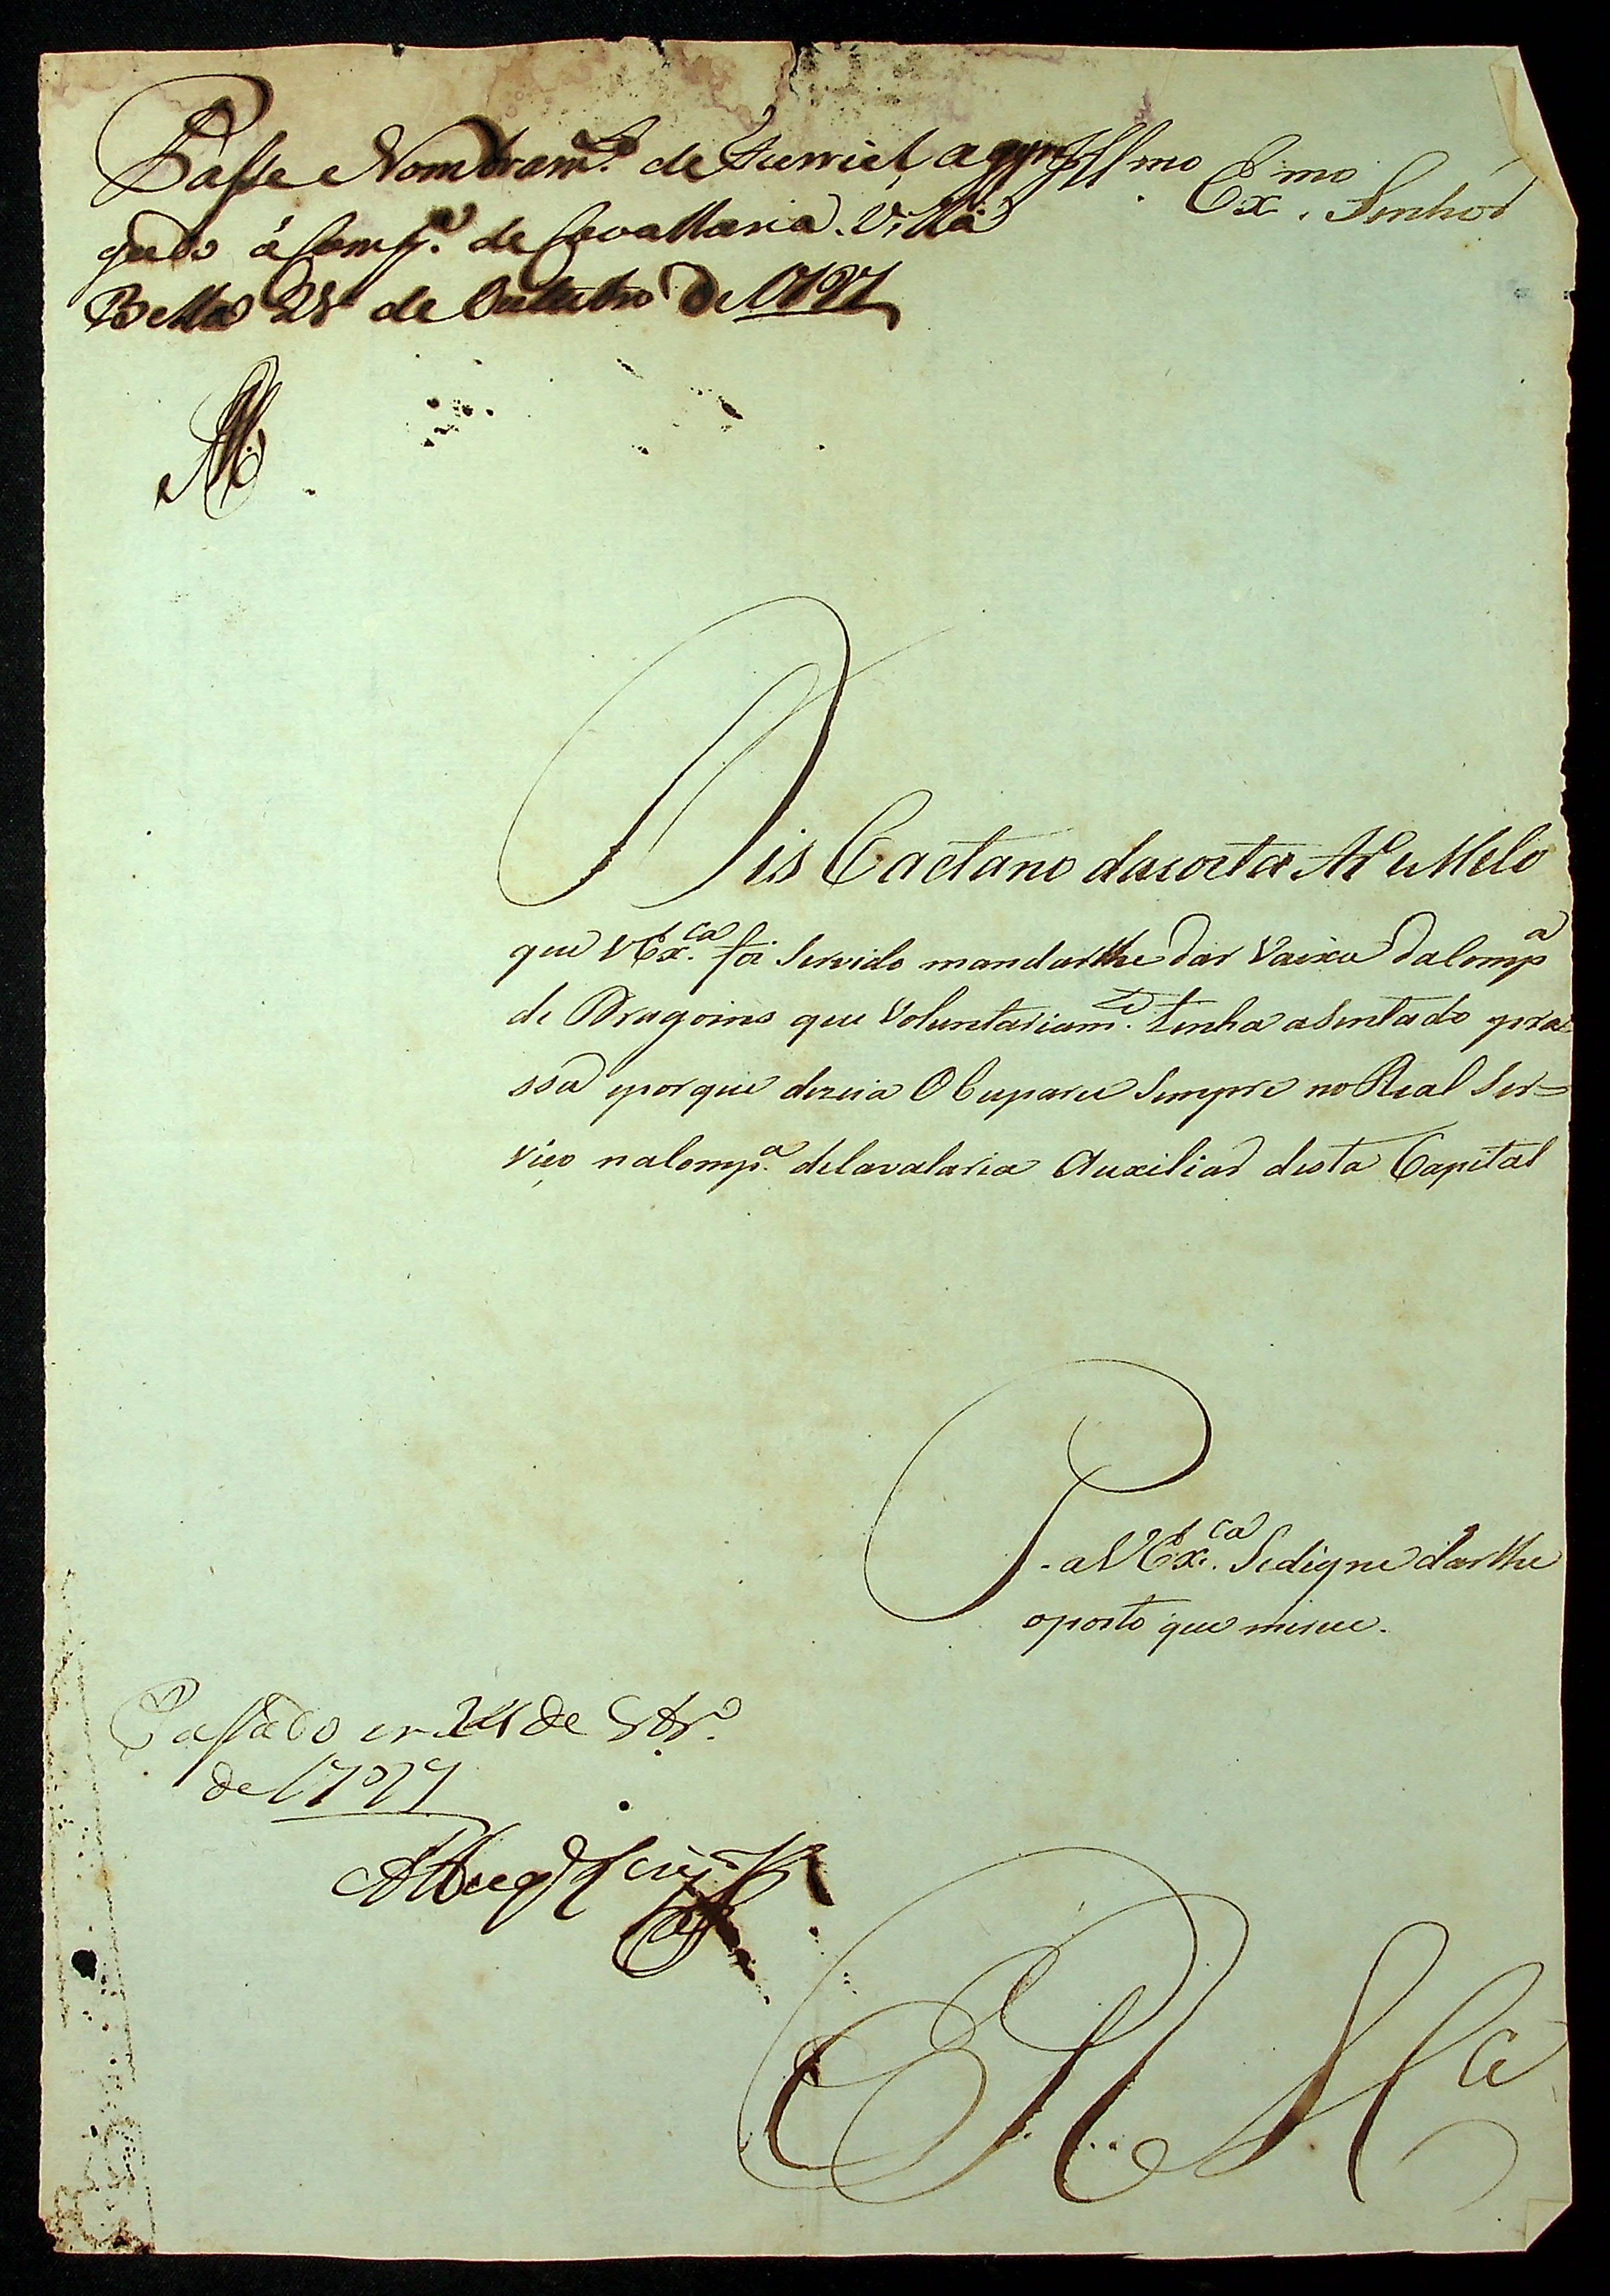 Passe Nombram.to de Furriel, aggre
gado á Comp.a de Cavallaria. Villa
Bella 28 de Outubro de 1797
Ill mo Ex. mo Senhor
Dis Caetano dacosta Ar.o e Melo
que VEx.ca foi Servido mandarlhe dar Vaixa daComp.a
de Dragoins que Voluntariam.te tinha asentado pra
ssa eporque dezeia OCuparce Sempre no Real Ser=
viço naComp.a deCavalaria Auxiliar desta Capital
P. a VEx.ca Sedigne darlhe
oposto que merece.
Passado em de 8br.o
de 1797
E R M ce